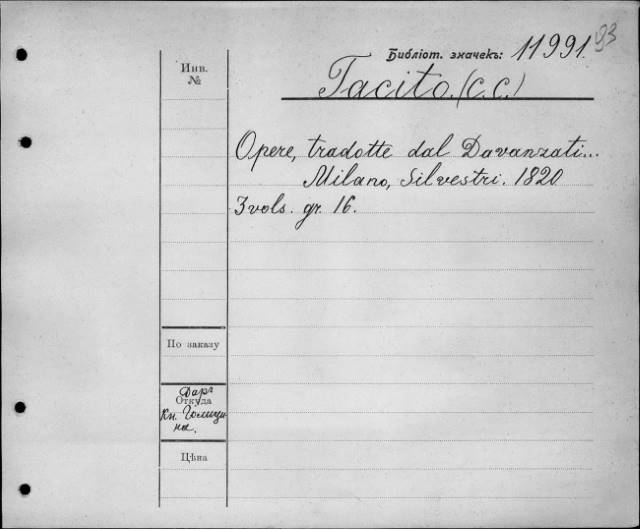 93
Библіот. значекъ: 11991.
Инв.
№
Tacito. (C. C.)
Opere, tradotte dal Davanzati...
Milano, Silvestri. 1820
3 vols. gr. 16.
По заказу
Даръ
Откуда
Кн. Голицы-
на.
Цѣна